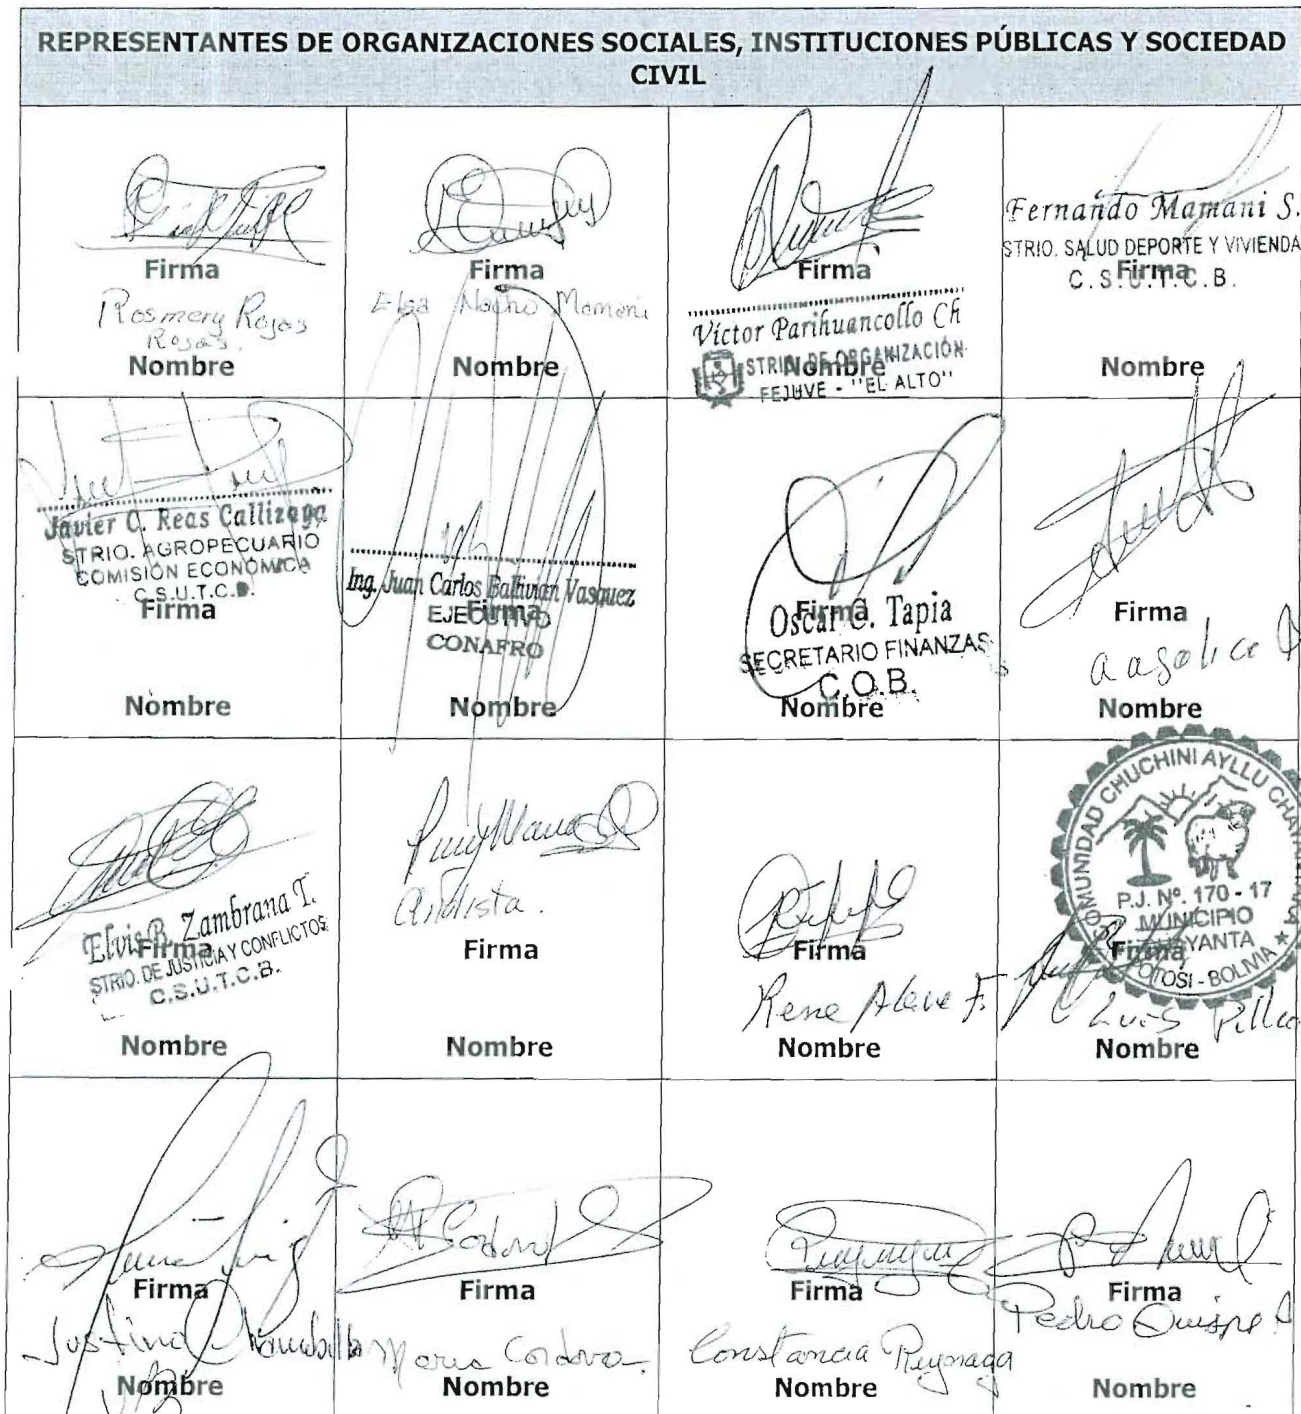 REPRESENTANTES DE ORGANIZACIONES SOCIALES, INSTITUCIONES PÚBLICAS Y SOCIEDAD
CIVIL
Firma
Rosmery Rojas
Rojas.
Nombre
Firma
Elsa Nacho Mamani
Nombre
Firma
Víctor Parihuancollo Ch
STRIO. DE ORGANIZACIÓN
Nombre
FEJUVE - "EL ALTO"
Fernando Mamani S.
STRIO. SALUD DEPORTE Y VIVIENDA
C.S.U.T.C.B.
Firma
Nombre
Javier C. Reas Callizaya
STRIO. AGROPECUARIO
COMISIÓN ECONÓMICA
C.S.U.T.C.B.
Firma
Nombre
Ing. Juan Carlos Ballivián Vasquez
EJECUTIVO
Firma
CONAFRO
Nombre
Firma
Oscar C. Tapia
SECRETARIO FINANZAS
C.O.B.
Nombre
Firma
Nombre
Elvis B. Zambrana T.
Firma
STRIO. DE JUSTICIA Y CONFLICTOS
C.S.U.T.C.B.
Nombre
Firma
Nombre
Firma
Rene F.
Nombre
COMUNIDAD CHUCHINI AYLLU
P.J. Nº. 170 - 17
MUNICIPIO
CHAYANTA
POTOSÍ - BOLIVIA
Firma
Luis
Nombre
Firma
Justina
Nombre
Cordov
Firma
Maria Cordova
Nombre
Firma
Constancia Reynaga
Nombre
Firma
Pedro Quispe
Nombre